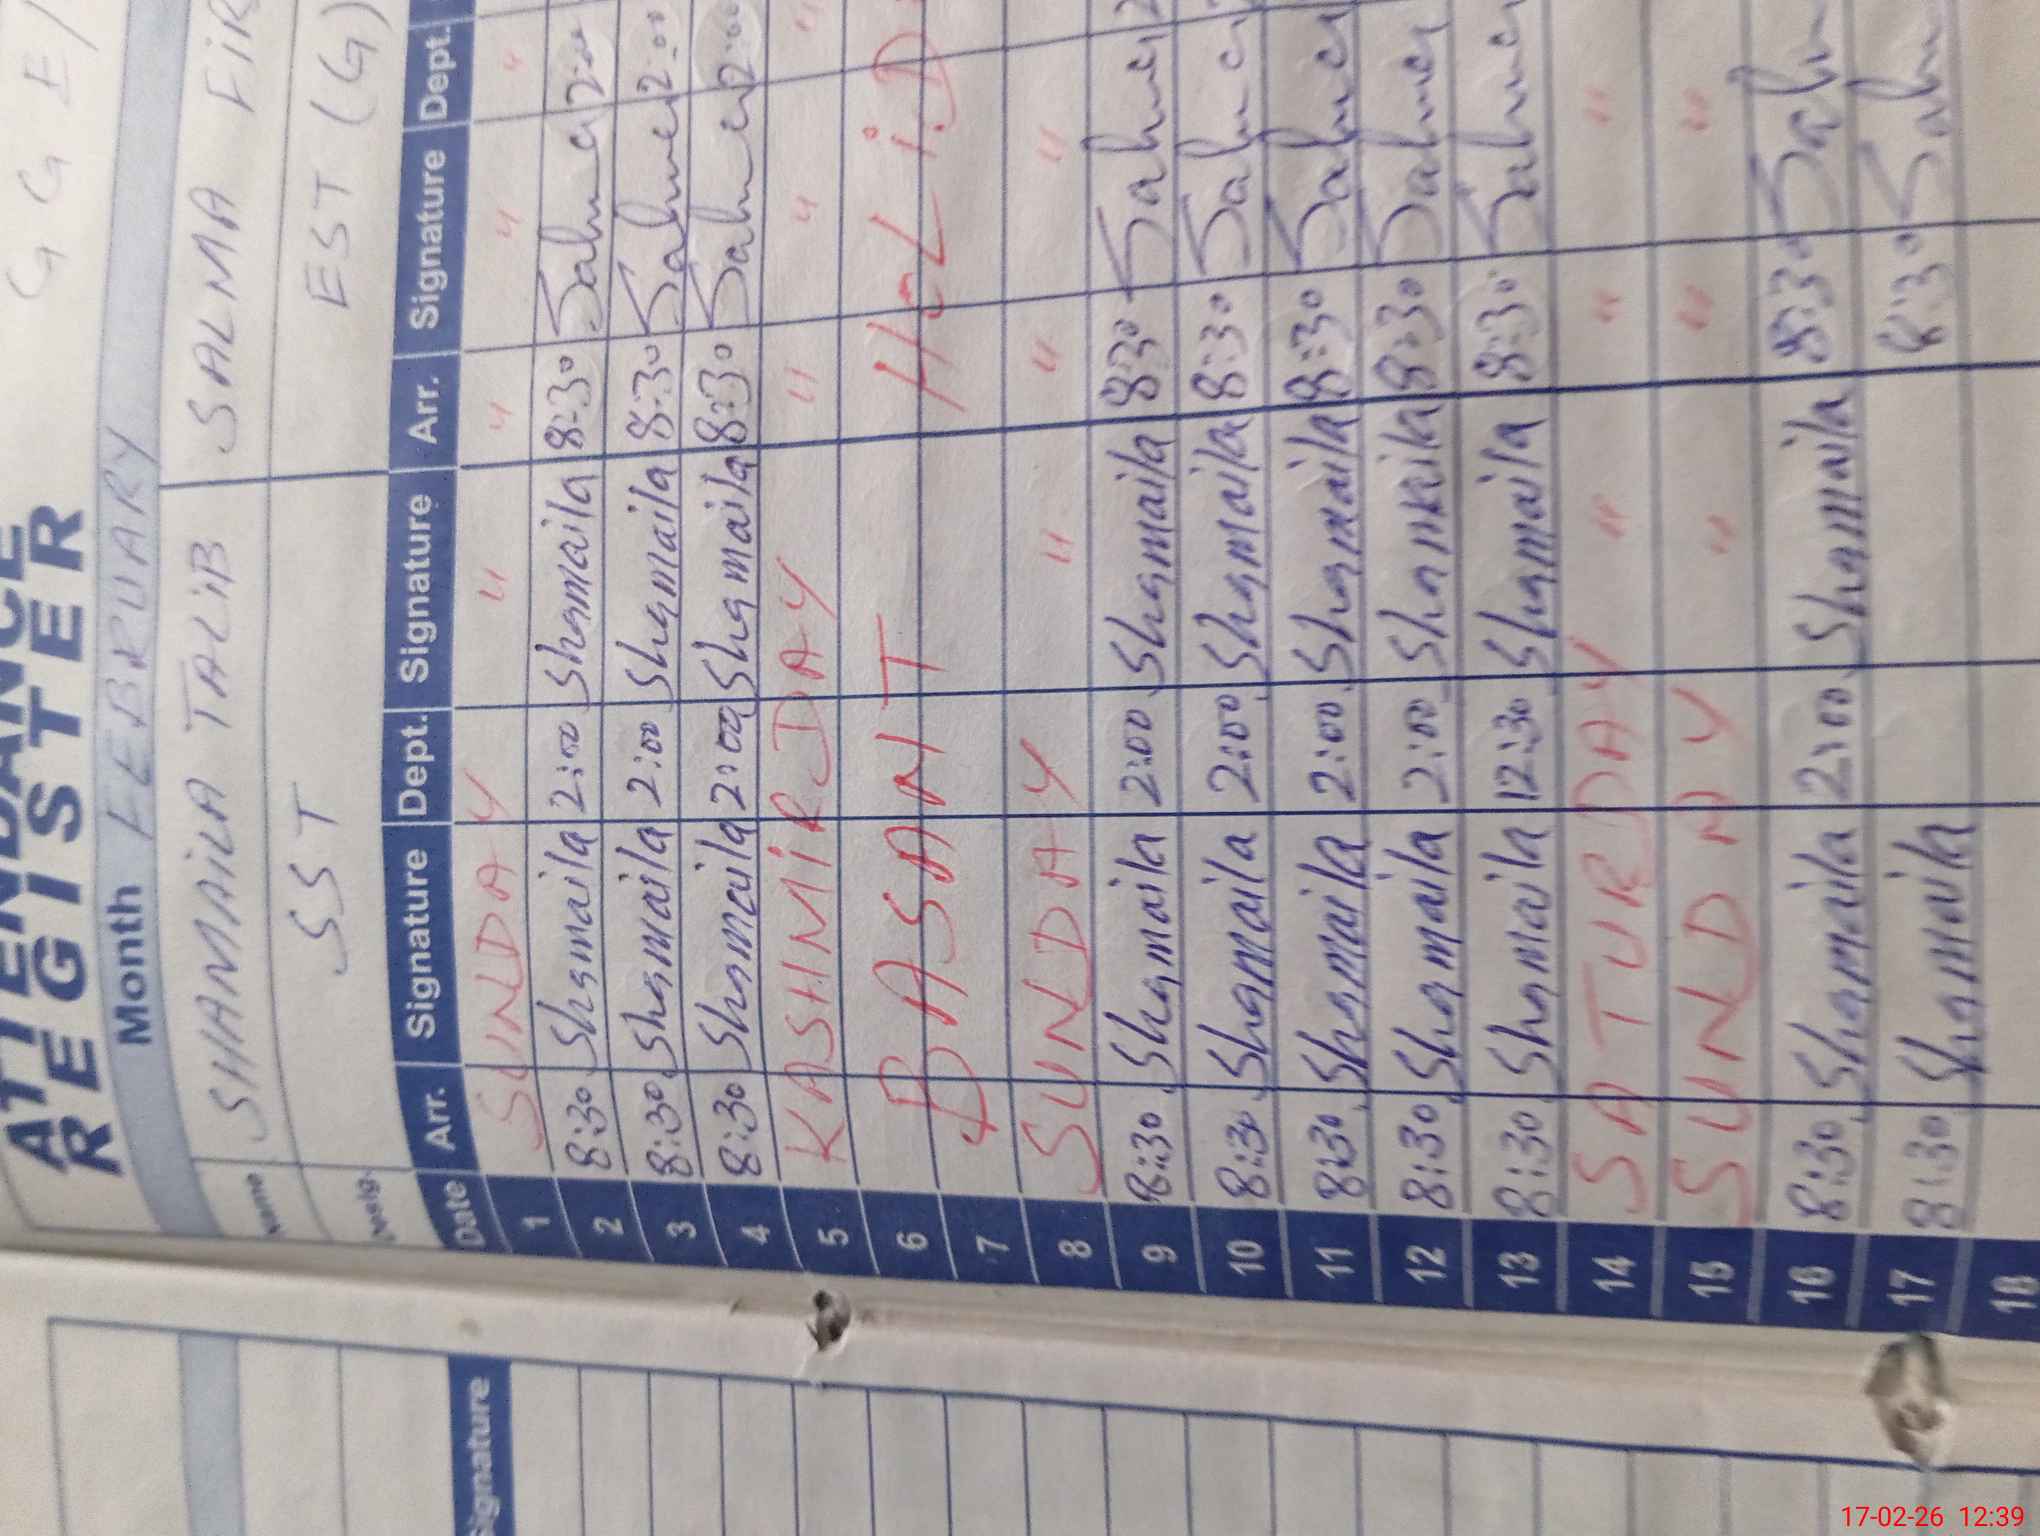 G G E
ATTENDANCE
REGISTER
Month FEBRUARY
Name SHAMAILA TALIB SALMA FIR
Desig. SST EST (G)
Date Arr. Signature Dept. Signature Arr. Signature Dept.
1 SUNDAY " " " "
2 8:30 Shamaila 2:00 Shamaila 8:30 Salma 2:00
3 8:30 Shamaila 2:00 Shamaila 8:30 Salma 2:00
4 8:30 Shamaila 2:00 Shamaila 8:30 Salma 2:00
5 KASHMIR DAY " " "
6 BASANT HOLiD
7
8 SUNDAY " " "
9 8:30 Shamaila 2:00 Shamaila 8:30 Salma 2
10 8:30 Shamaila 2:00 Shamaila 8:30 Salma
11 8:30 Shamaila 2:00 Shamaila 8:30 Salma
12 8:30 Shamaila 2:00 Shamaila 8:30 Salma
13 8:30 Shamaila 12:30 Shamaila 8:30 Salma
14 SATURDAY " " "
15 SUNDAY " " "
16 8:30 Shamaila 2:00 Shamaila 8:30 Salm
17 8:30 Shamaila 8:30 Salm
18
Signature
17-02-26 12:39